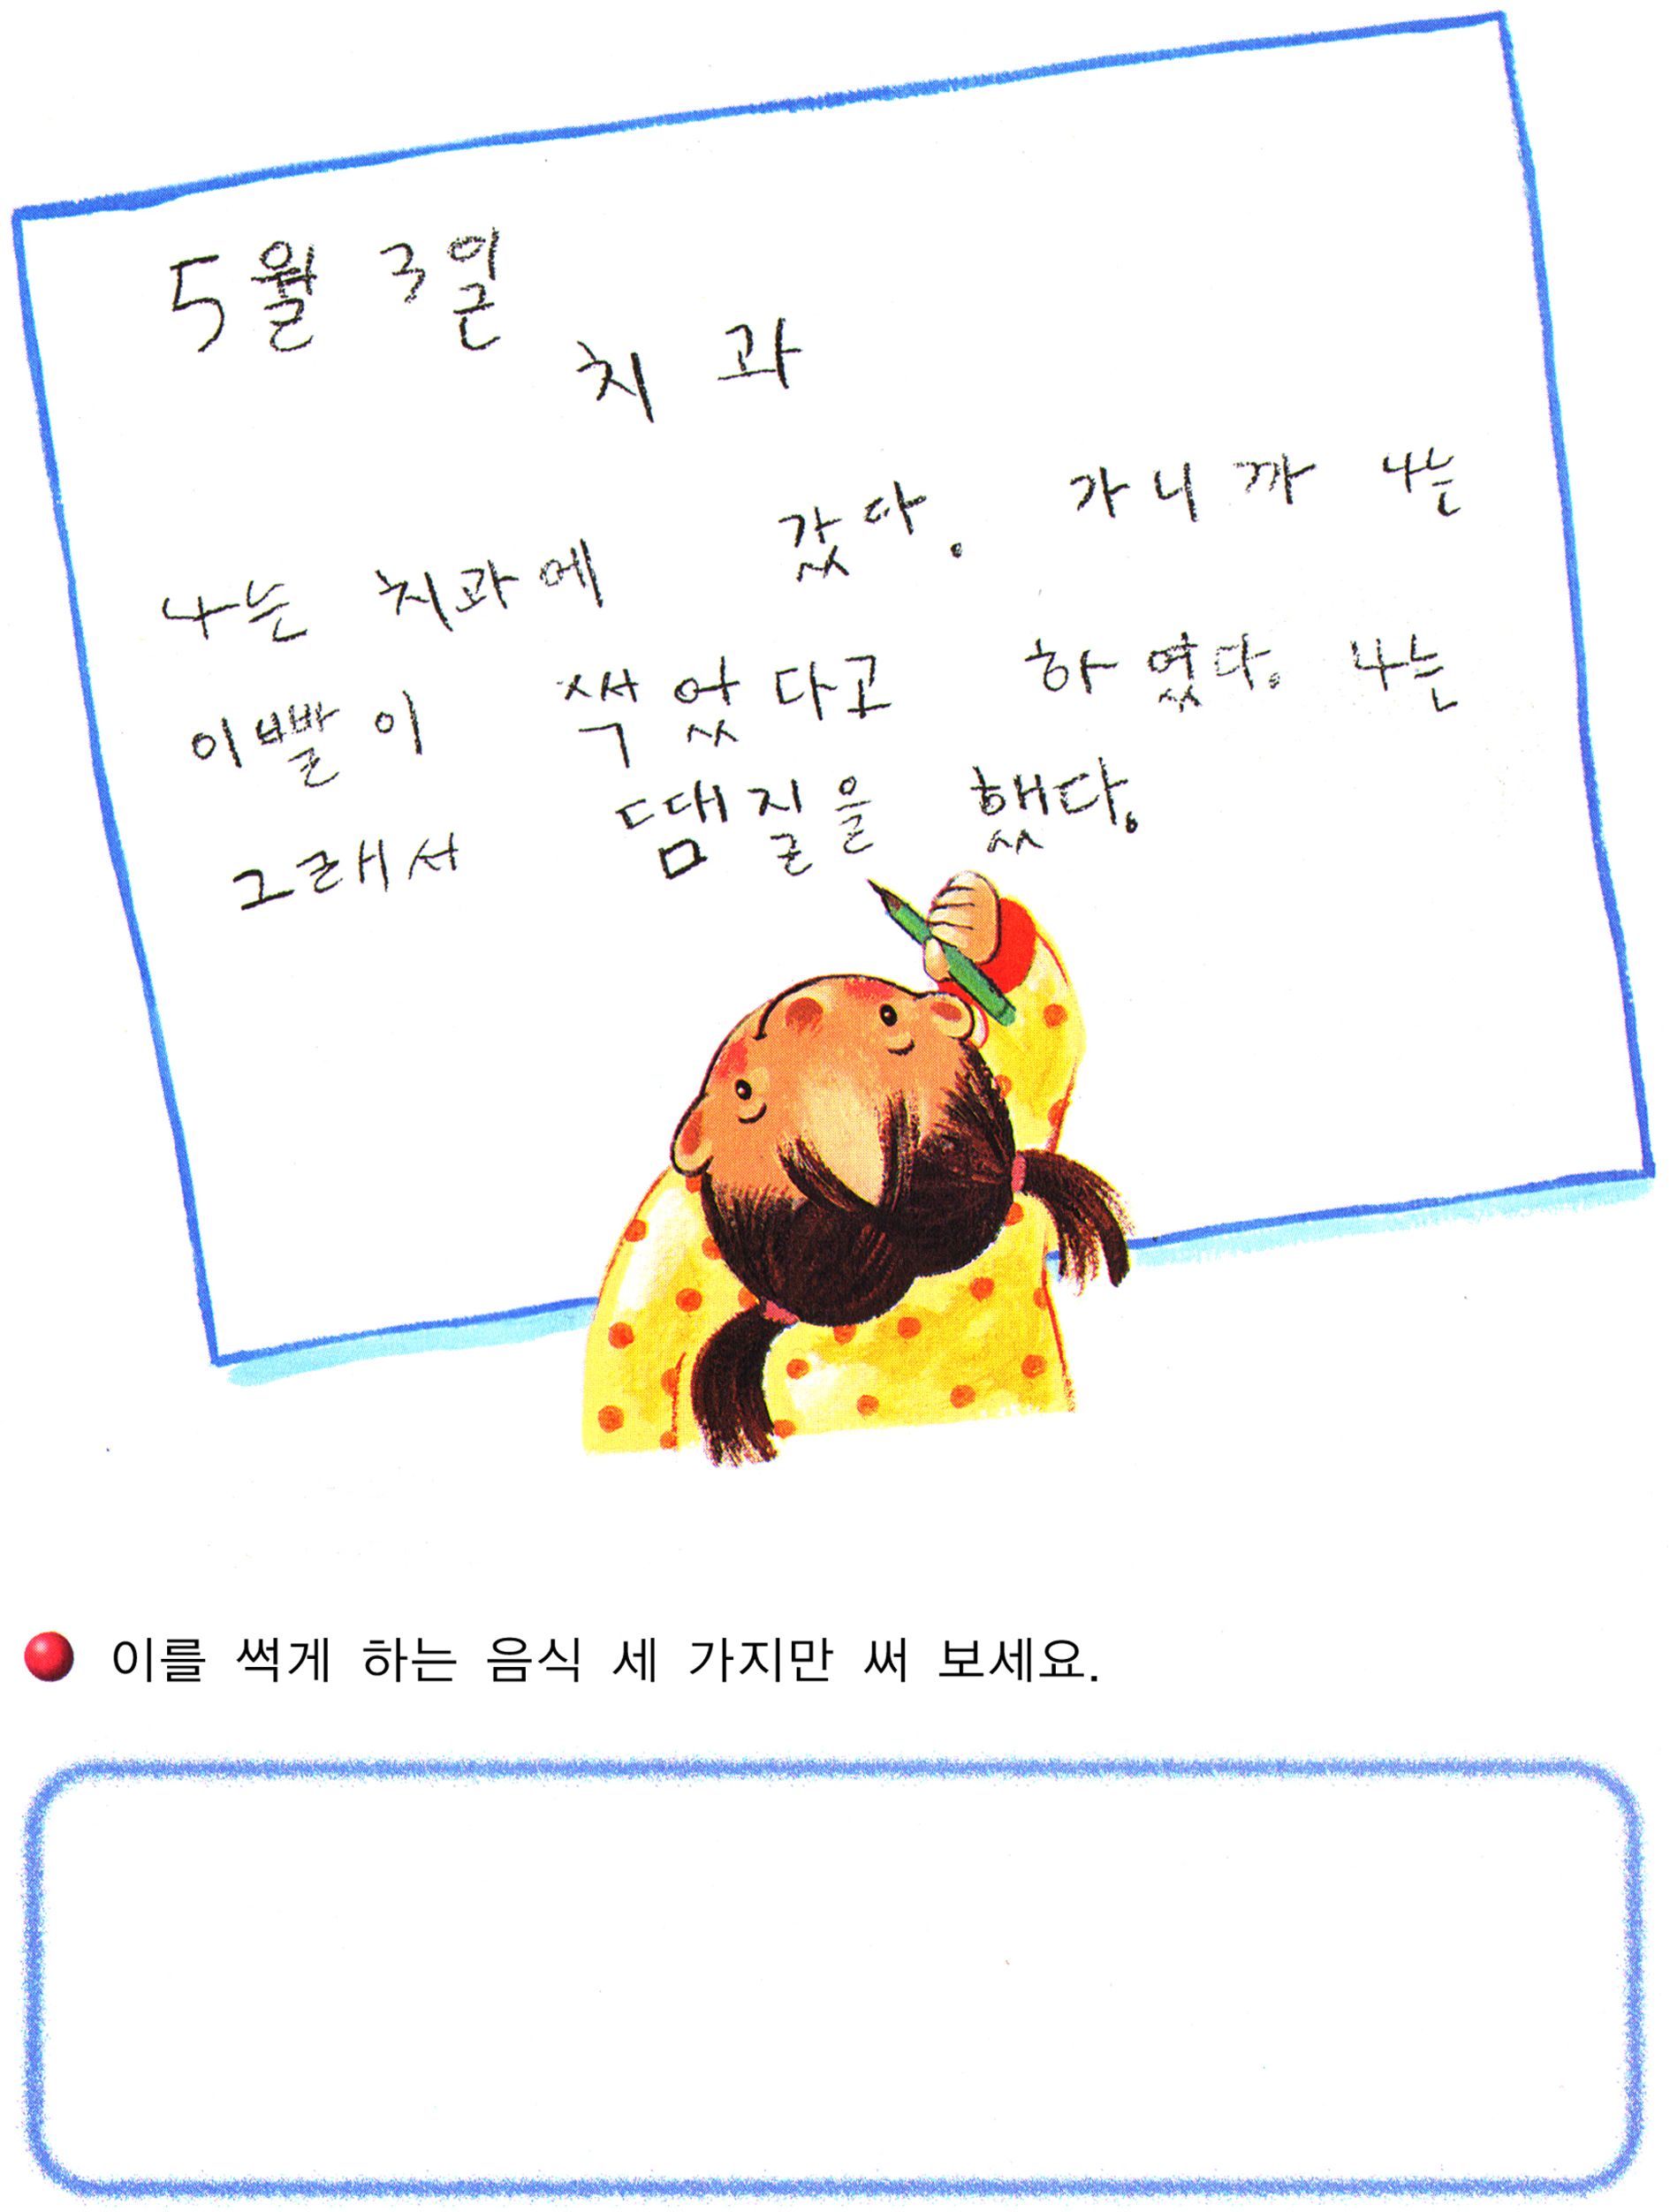 5월 3일
치과
나는 치과에 갔다. 가니까 나는
이빨이 썩었다고 하였다. 나는
그래서 땜질을 했다.
이를 썩게 하는 음식 세 가지만 써 보세요.